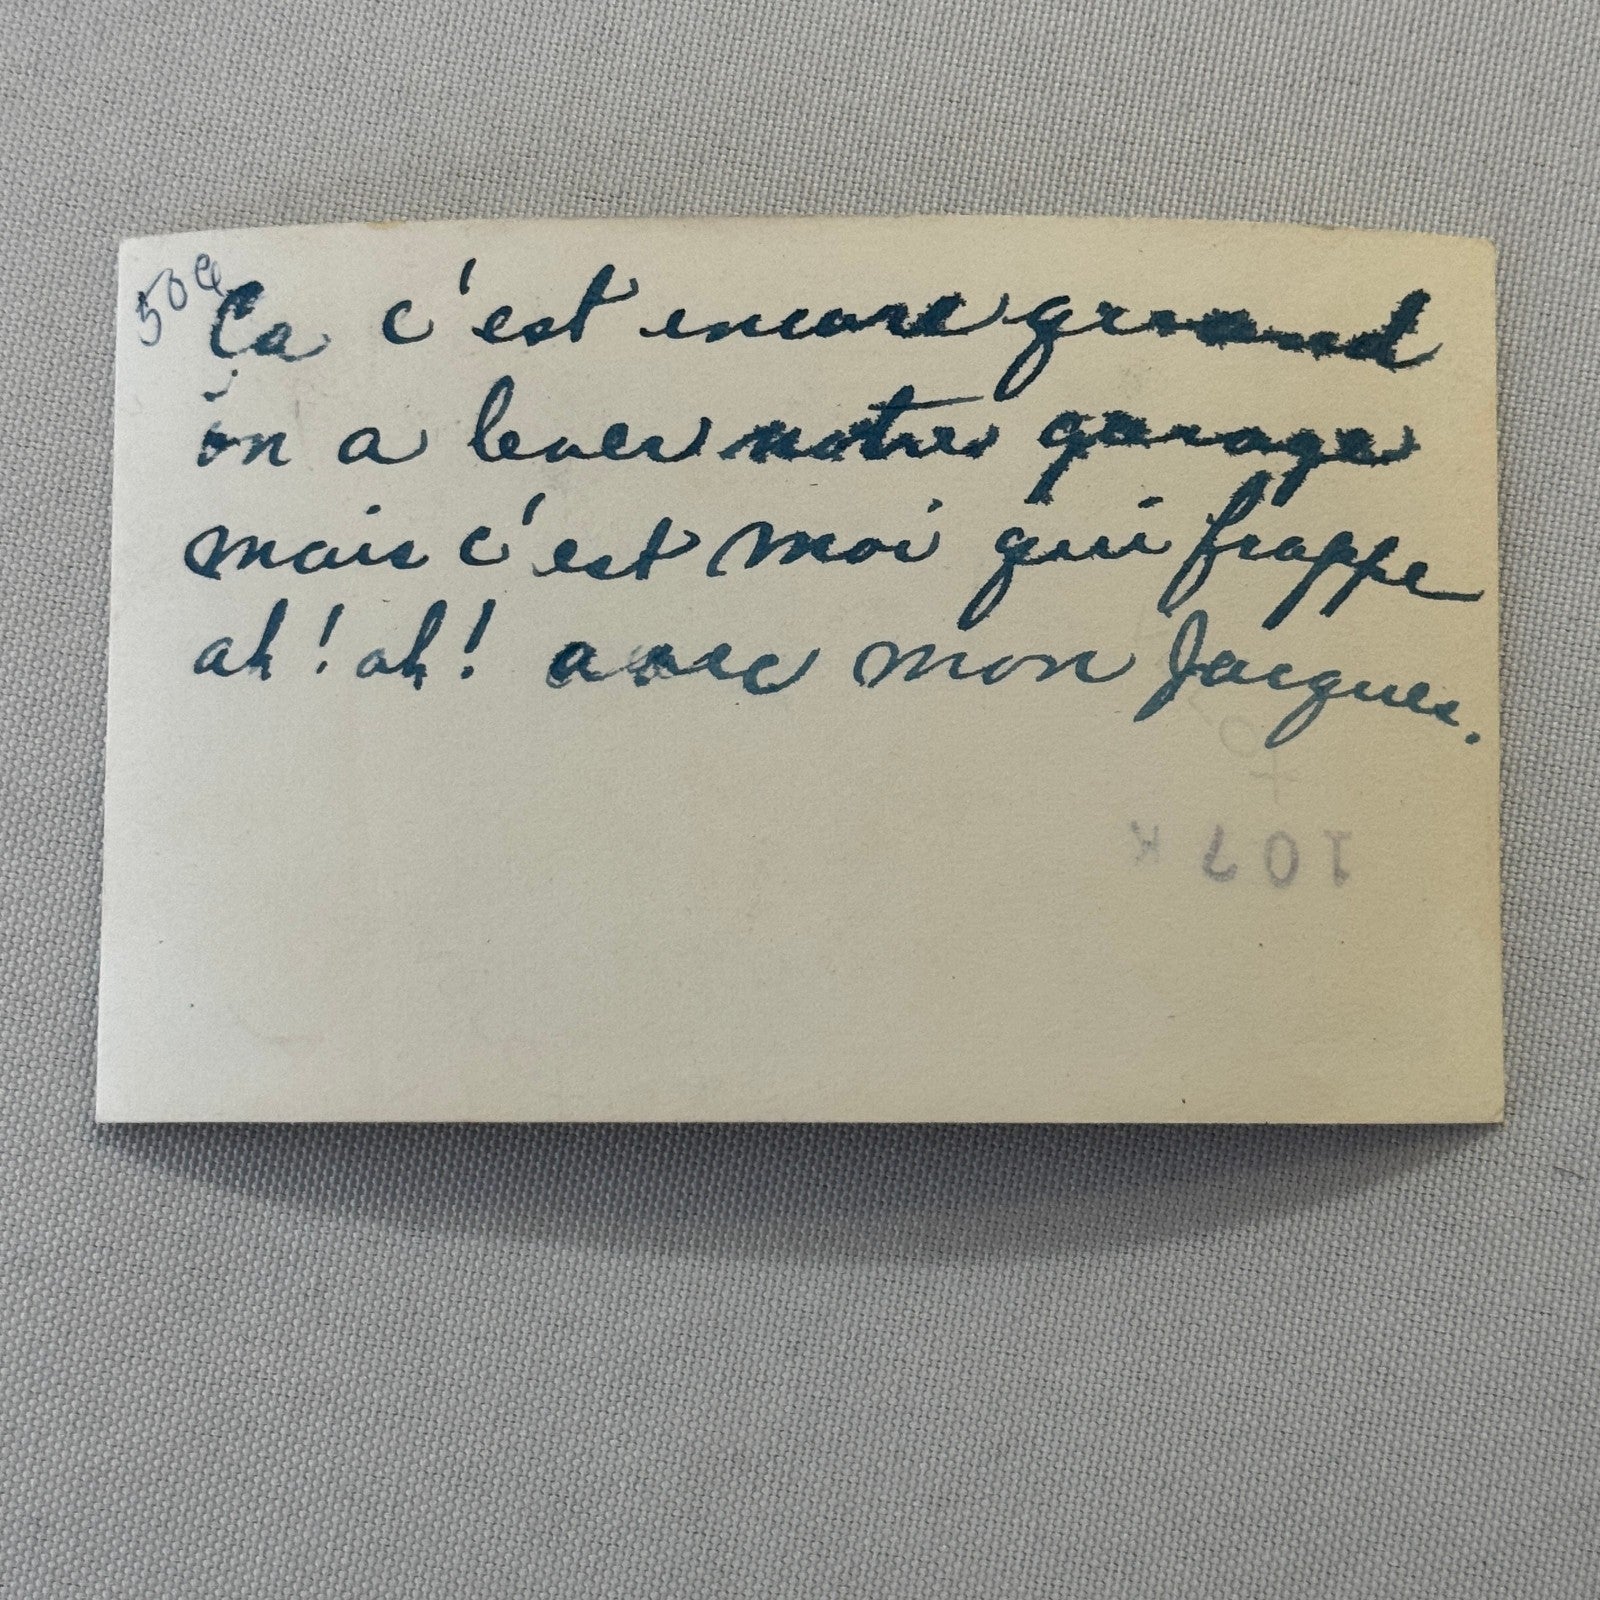 50¢
Ça c'est encore grand
on a lever notre garage
mais c'est moi qui frappe
ah! ah! avec mon Jacques.
107 K